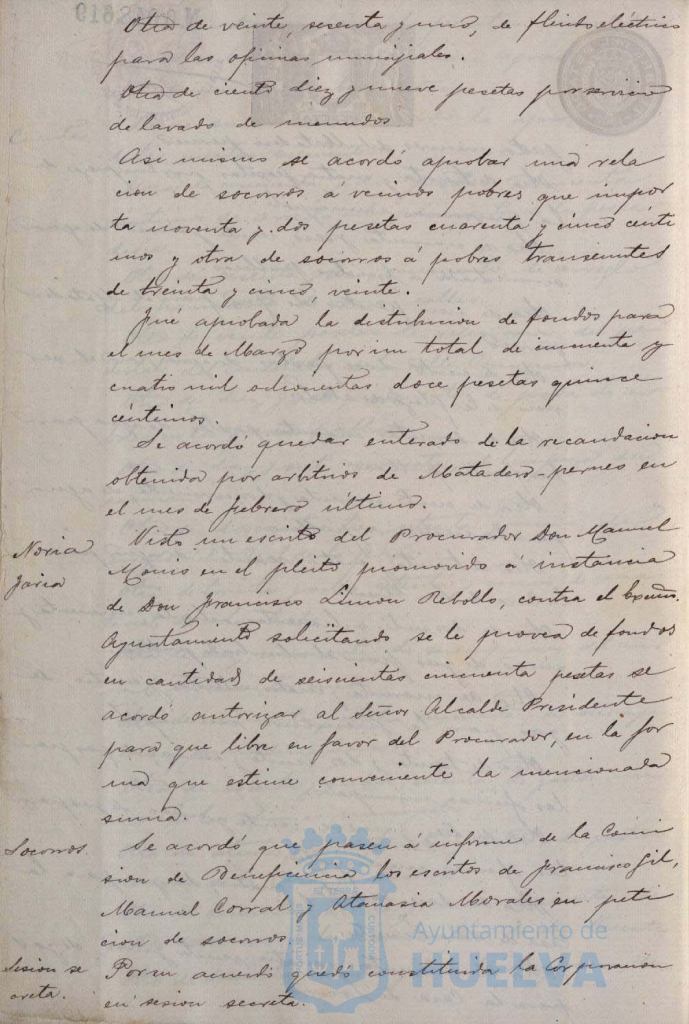 Otra de veinte, sesenta y uno, de fluido eléctrico
para las oficinas municipales.
Otra de ciento diez y nueve pesetas por servicio
de lavado de menudos
Asi mismo se acordó aprobar una rela
cion de socorros á vecinos pobres que impor
ta noventa y dos pesetas cuarenta y cinco cénti
mos y otra de socorros á pobres transeuntes
de treinta y cinco, veinte.
Fué aprobada la distribucion de fondos para
el mes de Marzo por un total de cincuenta y
cuatro mil ochocientas doce pesetas quince
céntimos.
Se acordó quedar enterado de la recaudacion
obtenida por arbitrios de Matadero-pernes en
el mes de febrero último.
Noria
Jaria
Visto un escrito del Procurador Don Manuel
Monis en el pleito promovido á instancia
de Don Francisco Limon Rebollo, contra el Excmo.
Ayuntamiento solicitando se le provea de fondos
en cantidad de seiscientas cincuenta pesetas se
acordó autorizar al Señor Alcalde Presidente
para que libre en favor del Procurador, en la for
ma que estime conveniente la mencionada
suma.
Socorros.
Se acordó que pasen á informe de la Comi
sion de Beneficencia los escritos de Francisco Gil,
Manuel Corral y Atanasia Morales en peti
cion de socorros.
Sesion se
creta.
Por un acuerdo quedó constituida la Corporacion
en sesion secreta.
Ayuntamiento de
HUELVA